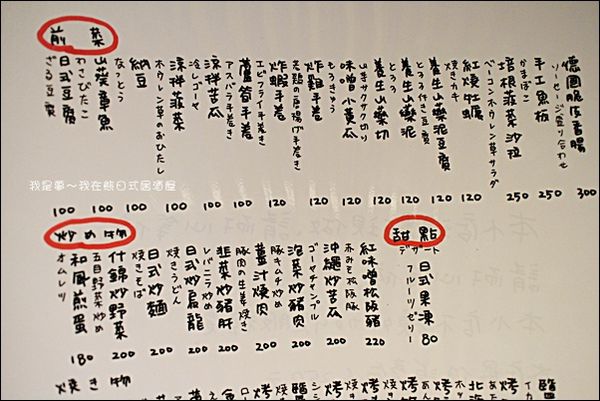 前菜
ざる豆腐
日式豆腐
100
わさびたこ
山葵章魚
100
なっとう
納豆
100
ホウレン草のおひたし
涼拌菠菜
100
冷しゴーヤ
涼拌苦瓜
100
アスパラ手巻き
蘆筍手卷
100
エビフライ手巻き
炸蝦手卷
若鶏の唐揚げ手巻き
炸雞手卷
もろきゅう
味噌小黃瓜
山いもサクサク切り
養生山藥切
とろろ
養生山藥泥
とろろ付き豆腐
養生山藥泥豆腐
120
焼きカキ
紅燒牡蠣
120
ベーコンホウレン草サラダ
培根菠菜沙拉
250
かまぼこ
手工魚板
250
ソーセージ盛り合わせ
德國脆皮香腸
300
我是夢～我在熊日式居酒屋
炒め物
オムレツ
和風煎蛋
180
五目野菜炒め
什錦炒野菜
200
焼きそば
日式炒麵
200
焼きうどん
日式炒烏龍
200
レバニラ炒め
韮菜炒豬肝
200
豚肉の生姜焼き
薑汁燒肉
200
豚キムチ炒め
泡菜炒豬肉
200
ゴーヤチャンプル
沖繩炒苦瓜
200
赤みそ松阪豚
紅味噌松阪豬
220
甜點
デザート
フルーツゼリー
日式果凍
80
焼き物